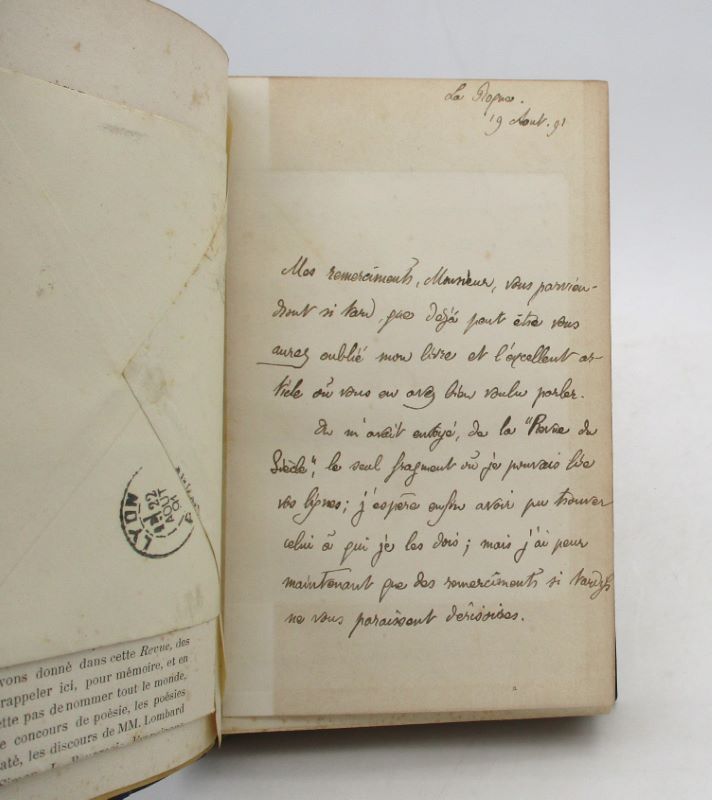 La
19 Aout. 91
Mes remerciments, Monsieur, vous parvien-
dront si tard, que déjà peut être vous
aurez oublié mon livre et l'excellent ar-
ticle où vous en avez bien voulu parler.
On m'avait envoyé, de la "Revue du
Siècle", le seul fragment où je pouvais lire
vos lignes; j'espère enfin avoir pu trouver
celui à qui je les dois; mais j'ai peur
maintenant que des remerciments si tardifs
ne vous paraissent dérisoires.
LYON
22
AOUT
91
vons donné dans cette Revue, des
rappeler ici, pour mémoire, et en
ette pas de nommer tout le monde,
e concours de poésie, les poésies
até, les discours de MM. Lombard